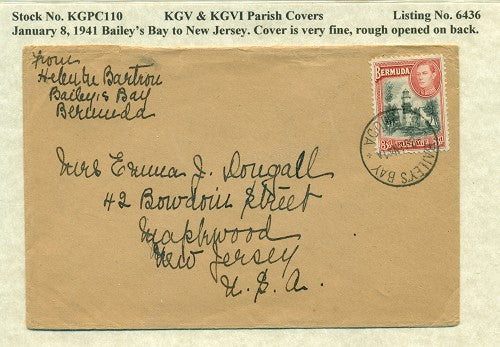 Stock No. KGPC110 KGV & KGVI Parish Covers Listing No. 6436
January 8, 1941 Bailey's Bay to New Jersey. Cover is very fine, rough opened on back.
From
Bartron
Bailey's Bay
Bermuda
BERMUDA
POSTAGE
BAILEY'S BAY
Mrs Emma J. Dougall
42 Bowdoin Street
Maplewood
New Jersey
U. S. A.